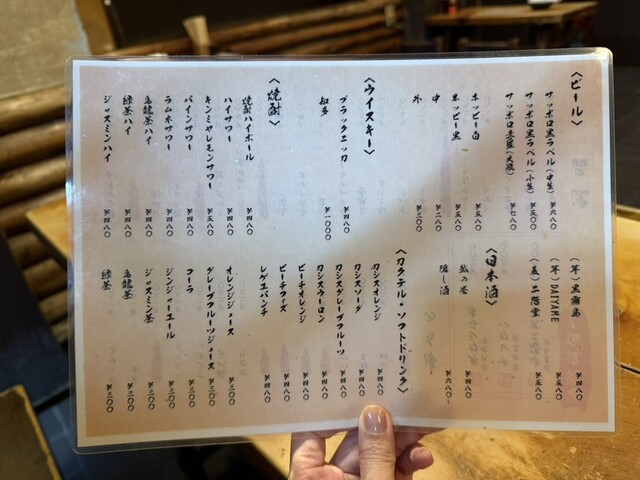 〈ビール〉
サッポロ黒ラベル（中生） ¥六八〇
サッポロ黒ラベル（小生） ¥五〇〇
サッポロ赤星（大瓶） ¥七八〇
ホッピー白 ¥五八〇
ホッピー黒 ¥五八〇
中 ¥二八〇
外 ¥三〇〇
〈ウイスキー〉
ブラックニッカ ¥四八〇
知多 ¥一〇〇〇
〈焼酎〉
焼酎ハイボール ¥四八〇
ハイサワー ¥四八〇
キンミヤレモンサワー ¥五八〇
バインサワー ¥四八〇
ラムネサワー ¥四八〇
烏龍茶ハイ ¥四八〇
緑茶ハイ ¥四八〇
ジャスミンハイ ¥四八〇
（芋）黒霧島 ¥四八〇
（芋）DAIYAME ¥五八〇
（麦）二階堂 ¥五八〇
〈日本酒〉
越乃 ¥四八〇
隠し酒 ¥六八〇〜
〈カクテル・ソフトドリンク〉
カシスオレンジ ¥四八〇
カシスソーダ ¥四八〇
カシスグレープフルーツ ¥四八〇
カシスウーロン ¥四八〇
ピーチオレンジ ¥四八〇
ピーチフィズ ¥四八〇
レゲエパンチ ¥四八〇
オレンジジュース ¥三〇〇
グレープフルーツジュース ¥三〇〇
コーラ ¥三〇〇
ジンジャーエール ¥三〇〇
ジャスミン茶 ¥三〇〇
烏龍茶 ¥三〇〇
緑茶 ¥三〇〇